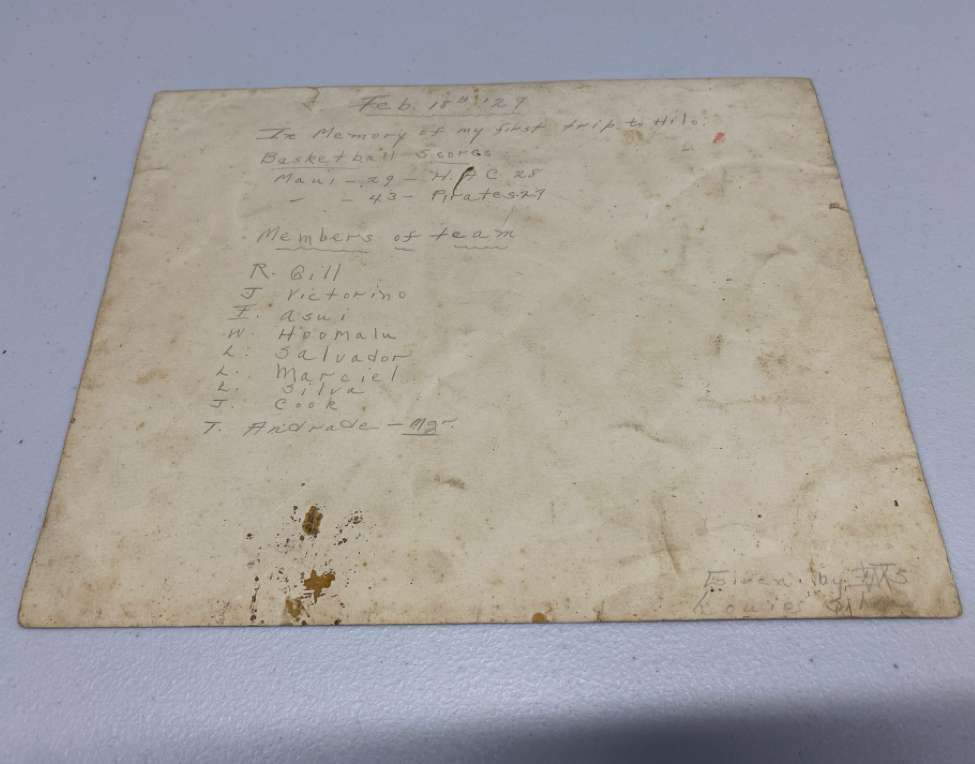 Feb. 18th '29
In Memory of my first trip to Hilo.
Basketball Scores
Maui - 29 - H.A.C. 28
" - 43 - Pirates 27
Members of team
R. Gill
J Victorino
I. Asui
W. Hoomalu
L. Salvador
L. Marciel
L. Silva
J. Cook
T. Andrade - Mgr.
Given by
Louies